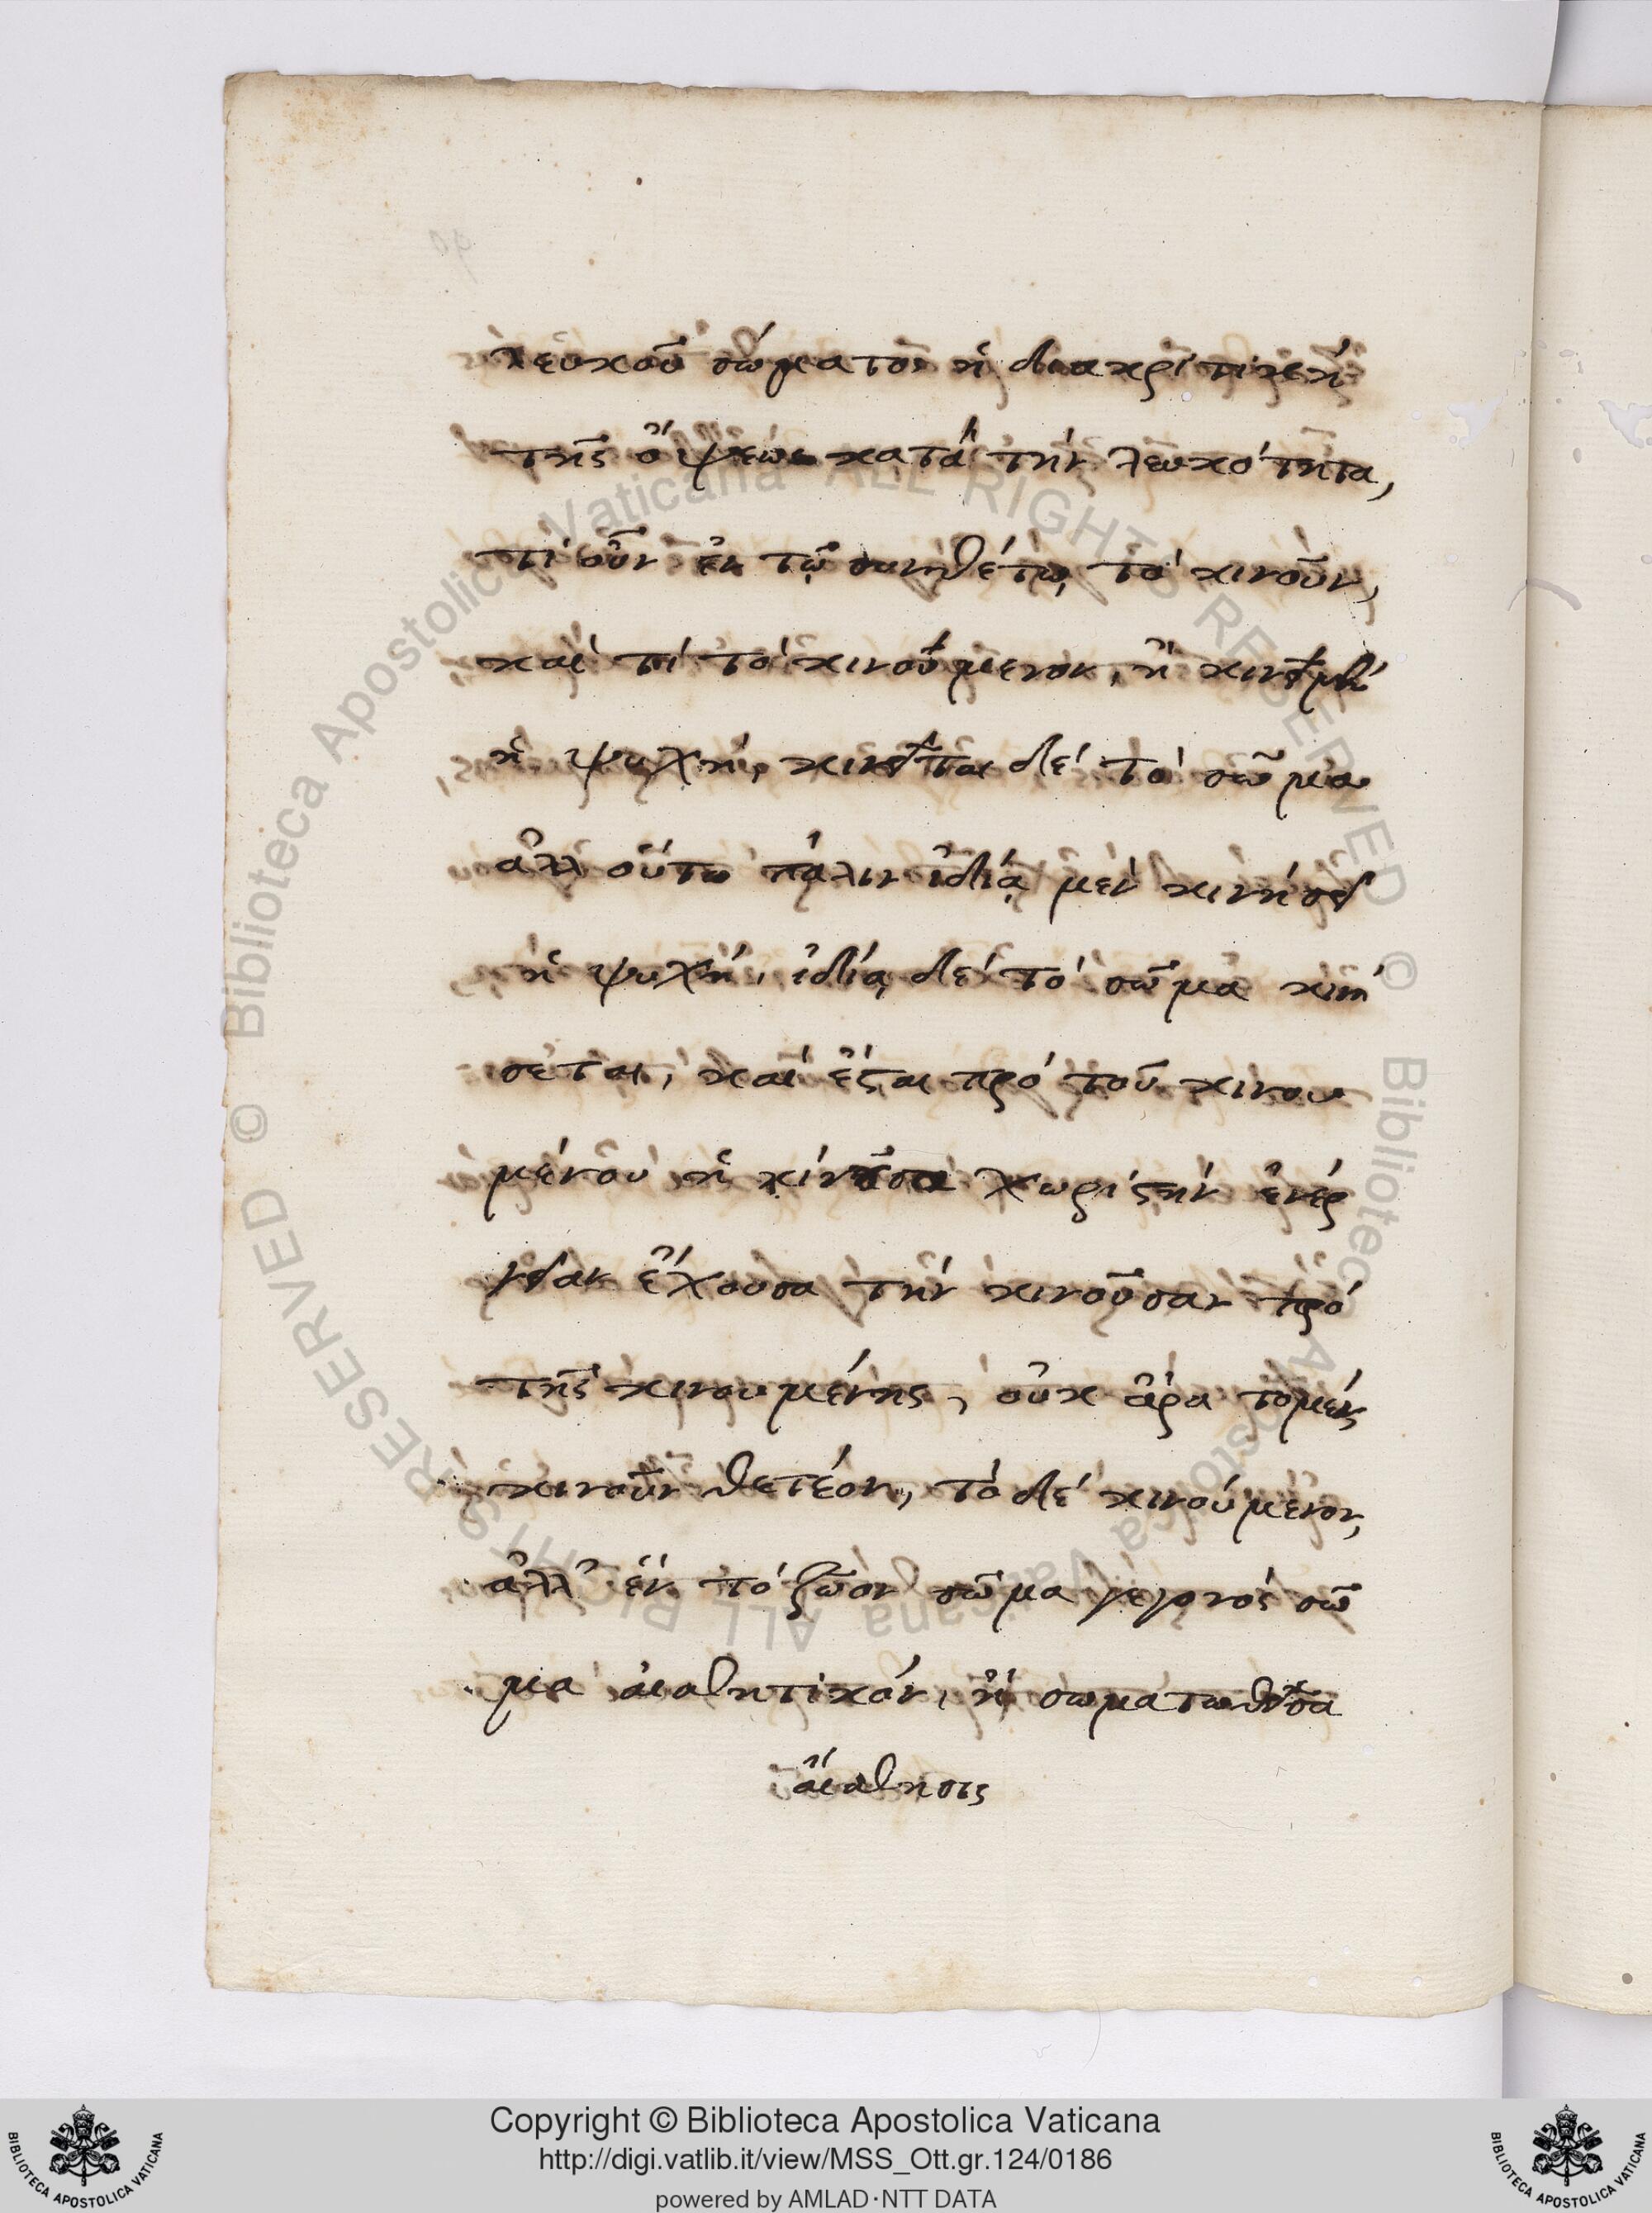 λευκοῦ σώματος ἡ διακριτικὴ
τῆς ὄψεως κατὰ τὴν λευκότητα,
τί οὖν ἐν τῷ συνθέτῳ τὸ κινοῦν,
καὶ τί τὸ κινούμενον, ἢ κινεῖ μὲν
ἡ ψυχή, κινεῖται δὲ τὸ σῶμα
ἀλλ οὕτω πάλιν ἰδίᾳ μὲν κινήσει
ἡ ψυχή, ἰδίᾳ δὲ τὸ σῶμα κινή
σεται, καὶ ἔσται πρὸ τοῦ κινου
μένου ἡ κινοῦσα χωριστὴν ἐνέρ
γειαν ἔχουσα τὴν κινοῦσαν πρὸ
τῆς κινουμένης, οὐκ ἄρα τὸ μὲν
κινοῦν θετέον, τὸ δὲ κινούμενον,
ἀλλ' ἓν τὸ ζῶον σῶμα γεγονὸς σῶ
μα αἰσθητικόν, ἢ σωματωθεῖσα
αἴσθησις
Copyright © Biblioteca Apostolica Vaticana
http://digi.vatlib.it/view/MSS_Ott.gr.124/0186
powered by AMLAD·NTT DATA
BIBLIOTECA APOSTOLICA VATICANA
BIBLIOTECA APOSTOLICA VATICANA
© Biblioteca Apostolica Vaticana ALL RIGHTS RESERVED
© Biblioteca Apostolica Vaticana ALL RIGHTS RESERVED